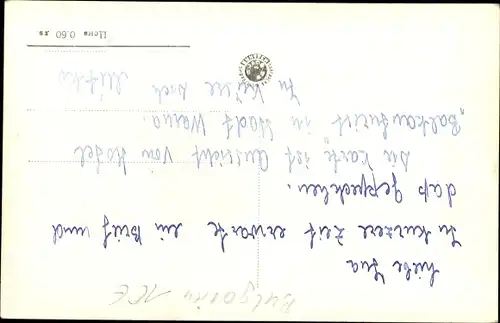 Liebe Iwa
In kurzere Zeit erwarte ein Brief und
das Gespräch.
Die Karte ist Aussicht vom Hotel
"Balkanturist" in Stadt Warna.
In Küsse Dich
Цена 0.60 лв
Bulgarien 10€